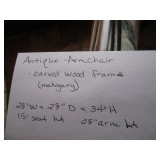 Antique Armchair
- carved wood frame
(mahogany)
28"W x 28" D x 34" H
15" seat ht 28" arm ht